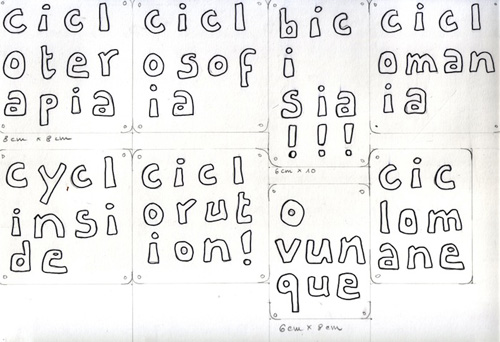 cicl
oter
apia
8cm x 8cm
cicl
osof
ia
bic
i
sia
!!!
6cm x 10
cicl
oman
ia
cycl
insi
de
cicl
orut
ion!
o
vun
que
6cm x 8cm
cic
lom
ane